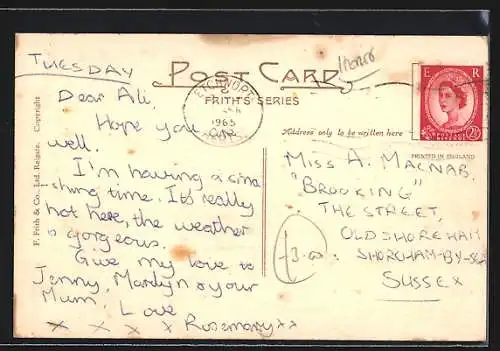 TUESDAY
POST CARD
FRITH'S SERIES
1965
E R
2½
Dear Ali,
Hope you are
well.
I'm having a sma
shing time. It's really
hot here, the weather
is gorgeous.
Give my love to
Jenny, Marilyn & your
Mum. Love
x x x x Rosemary xx
F. Frith & Co., Ltd. Reigate. Copyright
Address only to be written here
PRINTED IN ENGLAND
MISS A. MACNAB,
"BROOKING"
THE STREET,
OLD SHOREHAM
SHOREHAM-BY-SEA
SUSSEX
£3.00